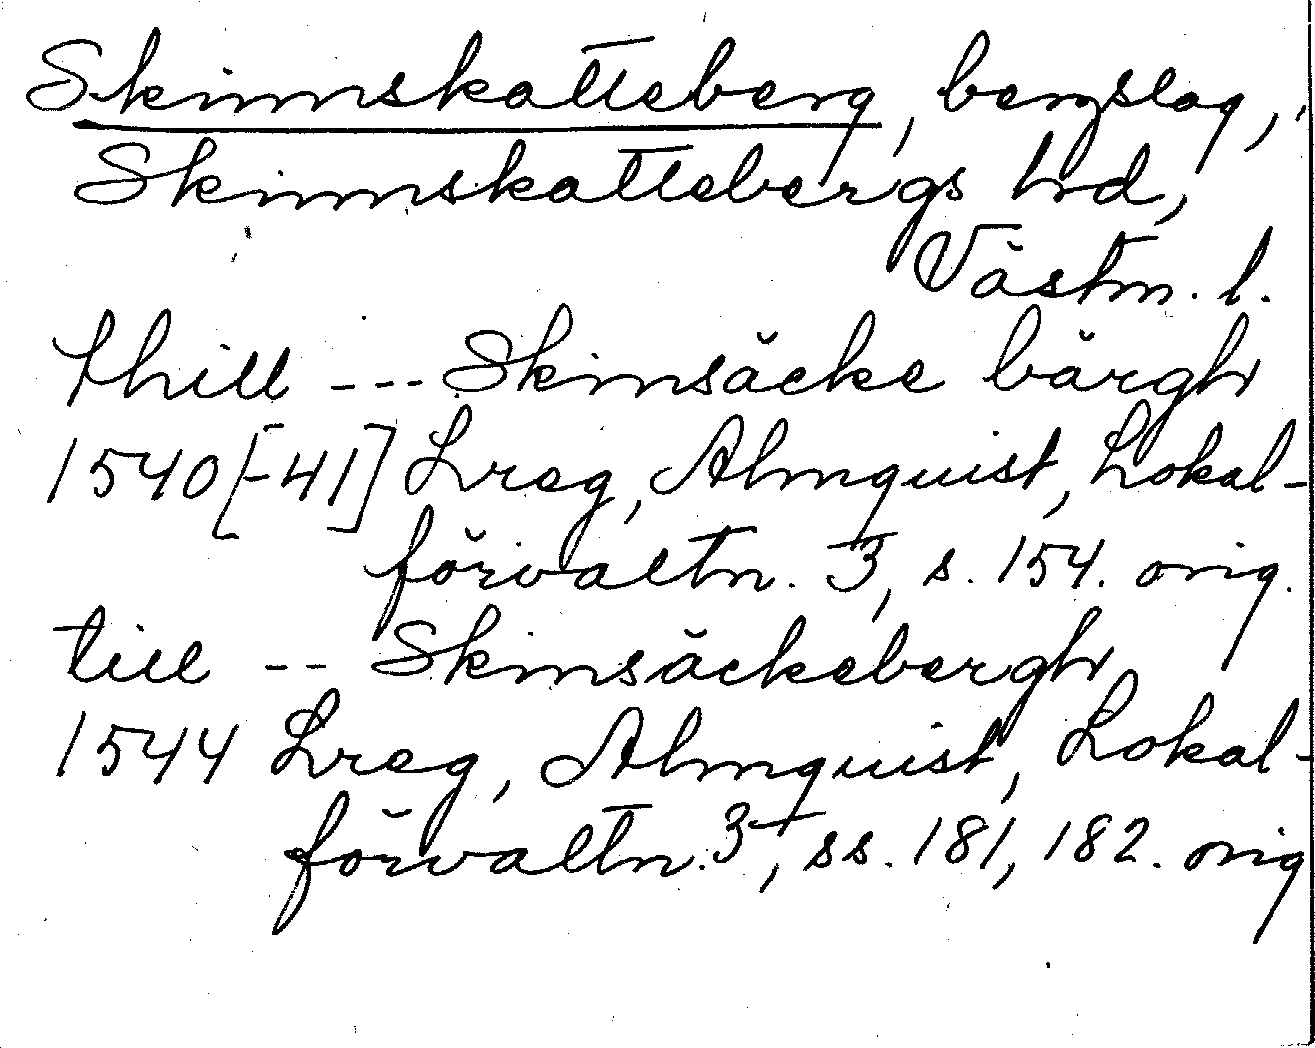 Skinnskatteberg, bergslag,
Skinnskattebergs hd,
Västm. l.
thill --- Skinsäcke bärgh
1540[-41] Lreg, Almquist, Lokal-
förvaltn. 3, s. 154. orig.
till -- Skinsäckebergh
1544 Lreg, Almquist, Lokal-
förvaltn. 3, ss. 181, 182. orig